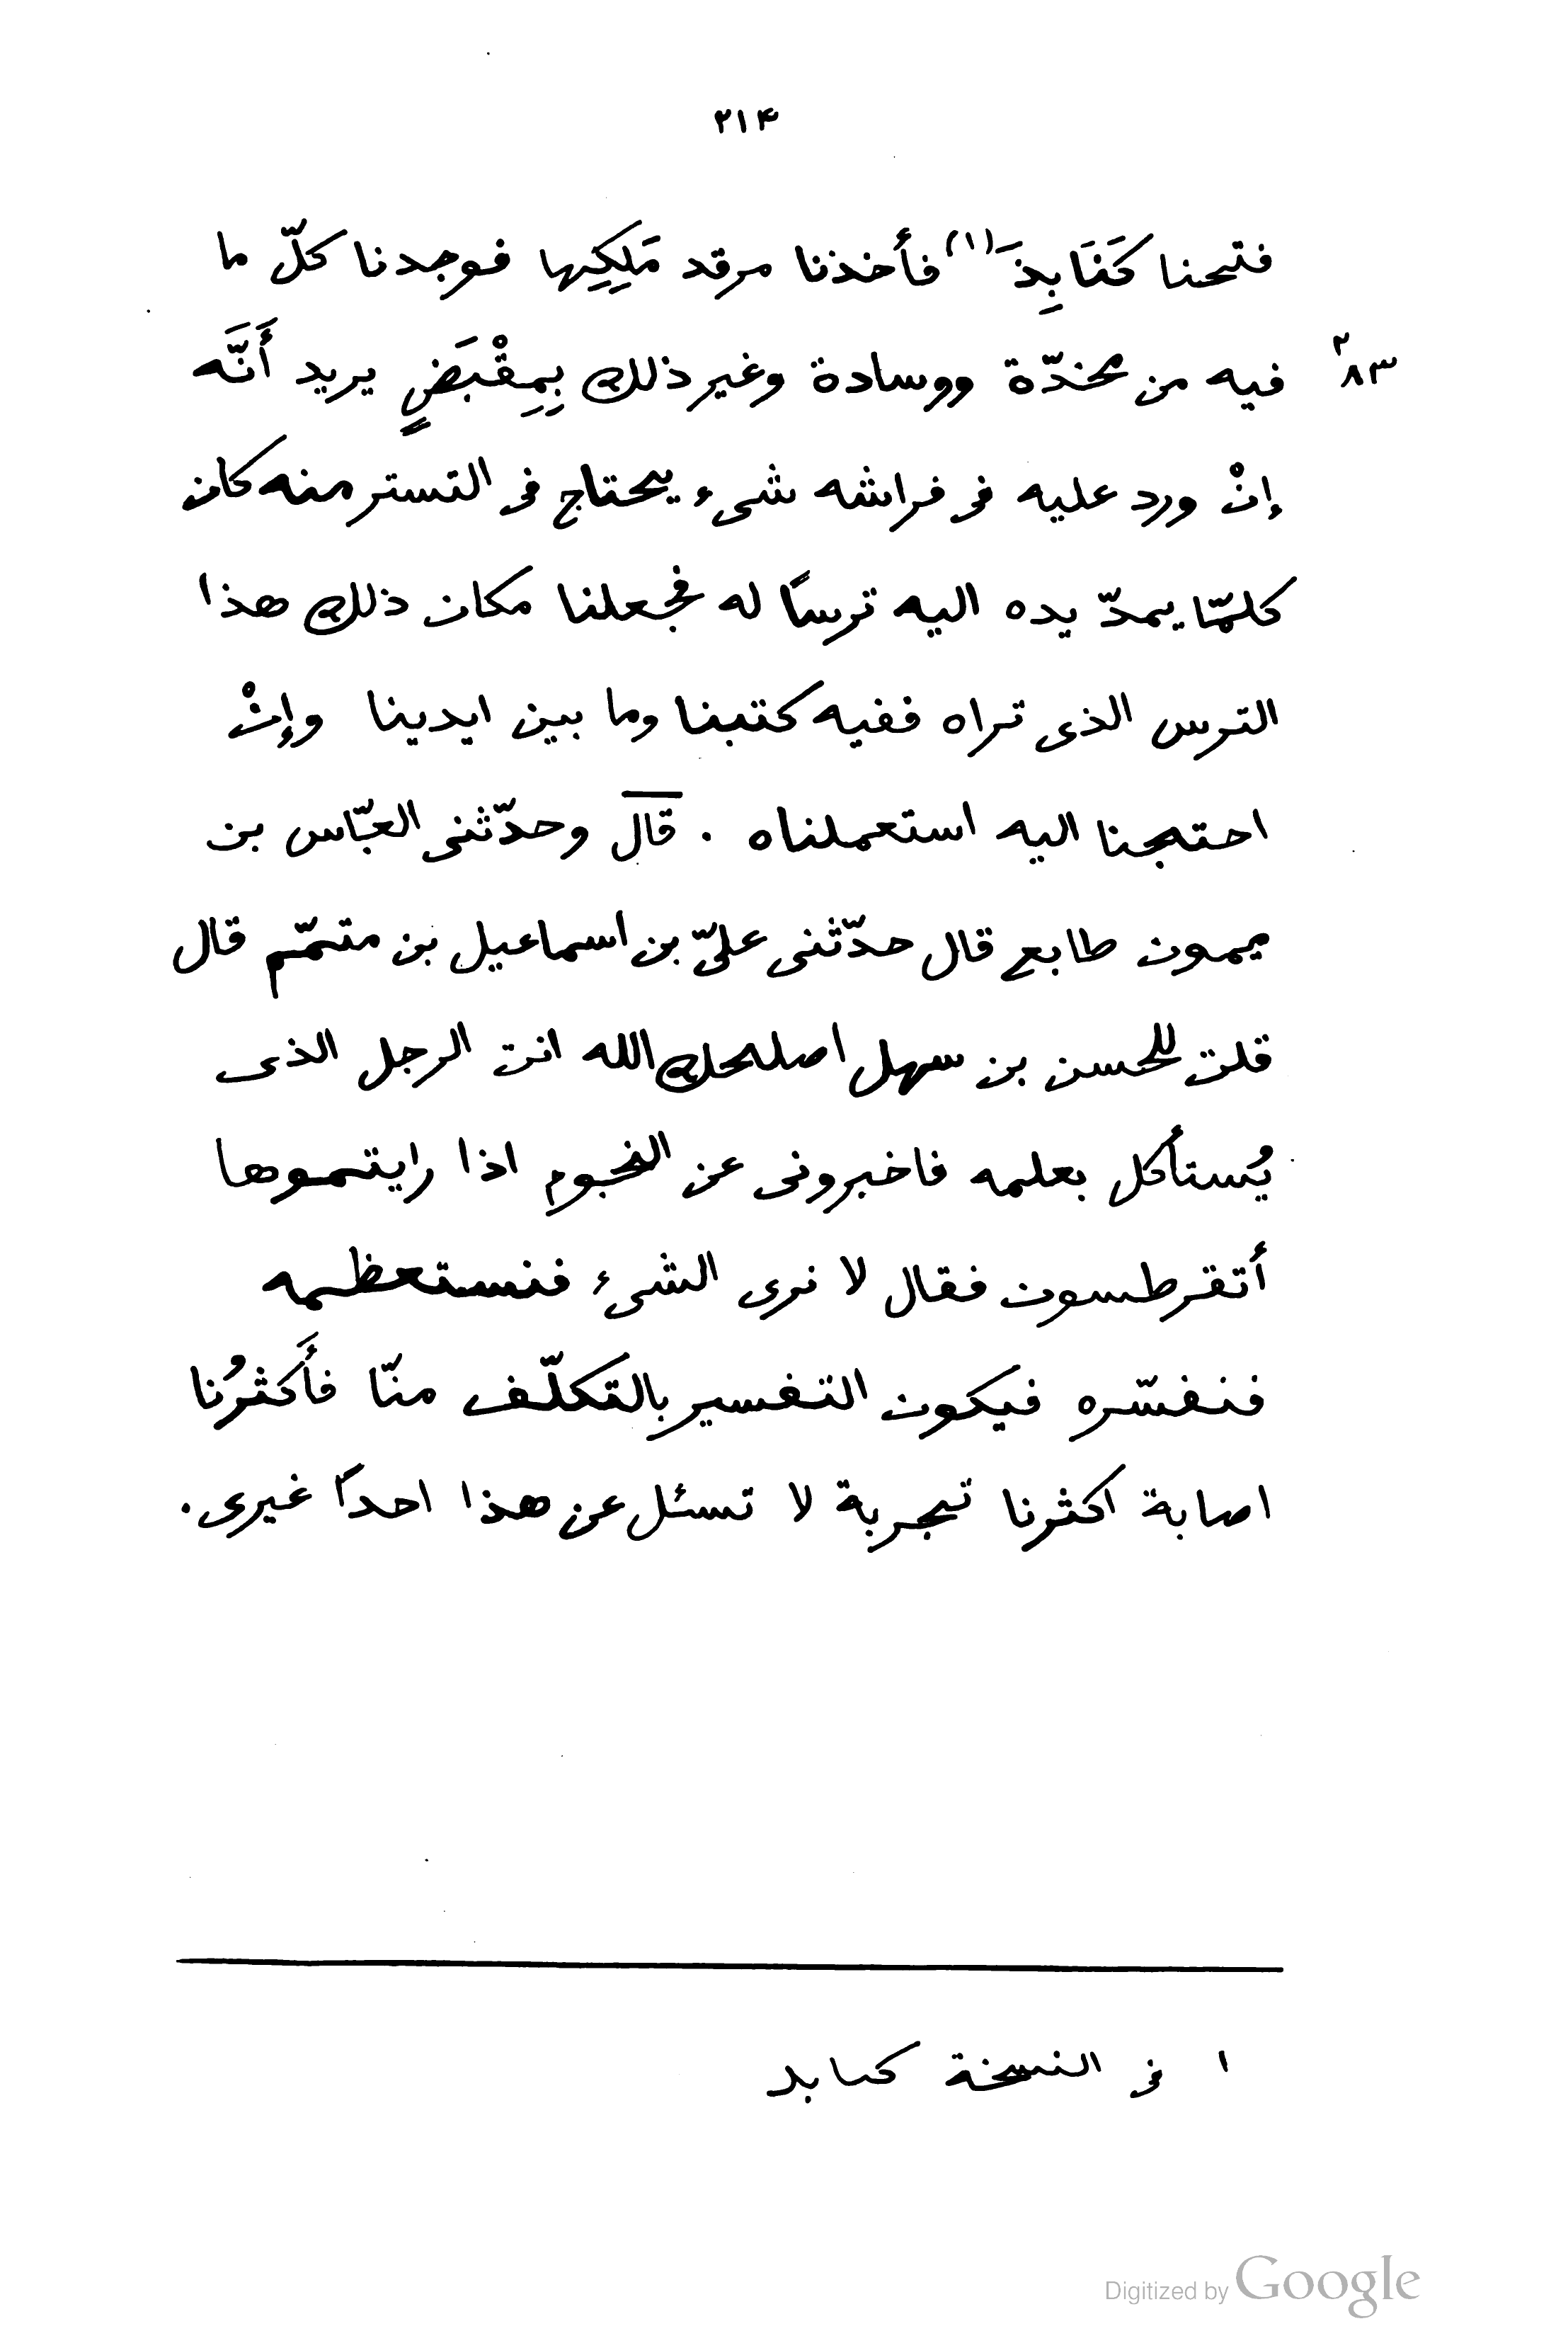 ٢١۴
فتحنا كَنَابِذَ (١) فأخذنا مرقد مَلِكِها فوجدنا كلّ ما
٨٣ ٢
فيه من مخدّة ووسادة وغير ذلك بِمِقْبَضٍ يريد أَنَّه
إنْ ورد عليه فى فراشه شىء يحتاج فى التستر منه كان
كلمّا يمدّ يده اليه ترسًا له فجعلنا مكان ذلك هذا
الترس الذى تراه ففيه كتبنا وما بين ايدينا وإنْ
احتجنا اليه استعملناه . قال وحدّثنى العبّاس بن
ميمون طابع قال حدّثنى علىّ بن اسماعيل بن متمّم قال
قلت للحسن بن سهل اصلحك الله انت الرجل الذى
يُستأكل بعلمه فاخبرونى عن النجوم اذا رايتموها
أتقرطسون فقال لا نرى الشىء فنستعظمه
فنفسّره فيكون التفسير بالتكلّف منّا فأَكثرُنا
اصابة اكثرنا تجربة لا تسئل عن هذا احدًا غيرى.
١ فى النسخة كبابد
Digitized by Google